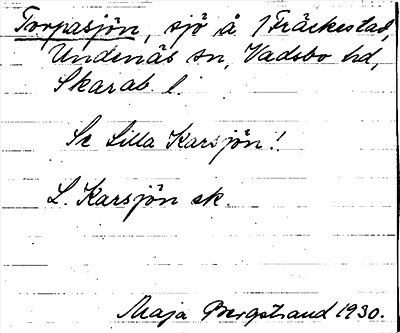 Torpasjön, sjö å 1 Fräckestad,
Undenäs sn, Vadsbo hd,
Skarab l.
Se Lilla Karsjön!
L. Karsjön ek.
Maja Bergstrand 1930.